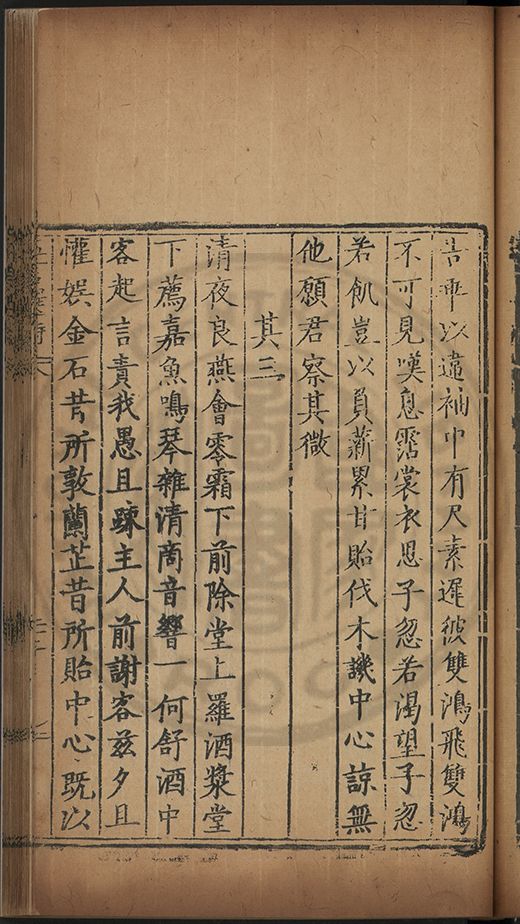 告車以違袖中有尺素遲彼雙鴻飛雙鴻
不可見嘆息霑裳衣思子忽若渴望子忽
若飢豈以負薪累甘貽伐木譏中心諒無
他願君察其微
其三
清夜良燕會零霜下前除堂上羅酒漿堂
下薦嘉魚鳴琴雜清商音響一何舒酒中
客起言責我愚且踈主人前謝客茲夕且
懽娛金石昔所敦蘭芷昔所貽中心既以